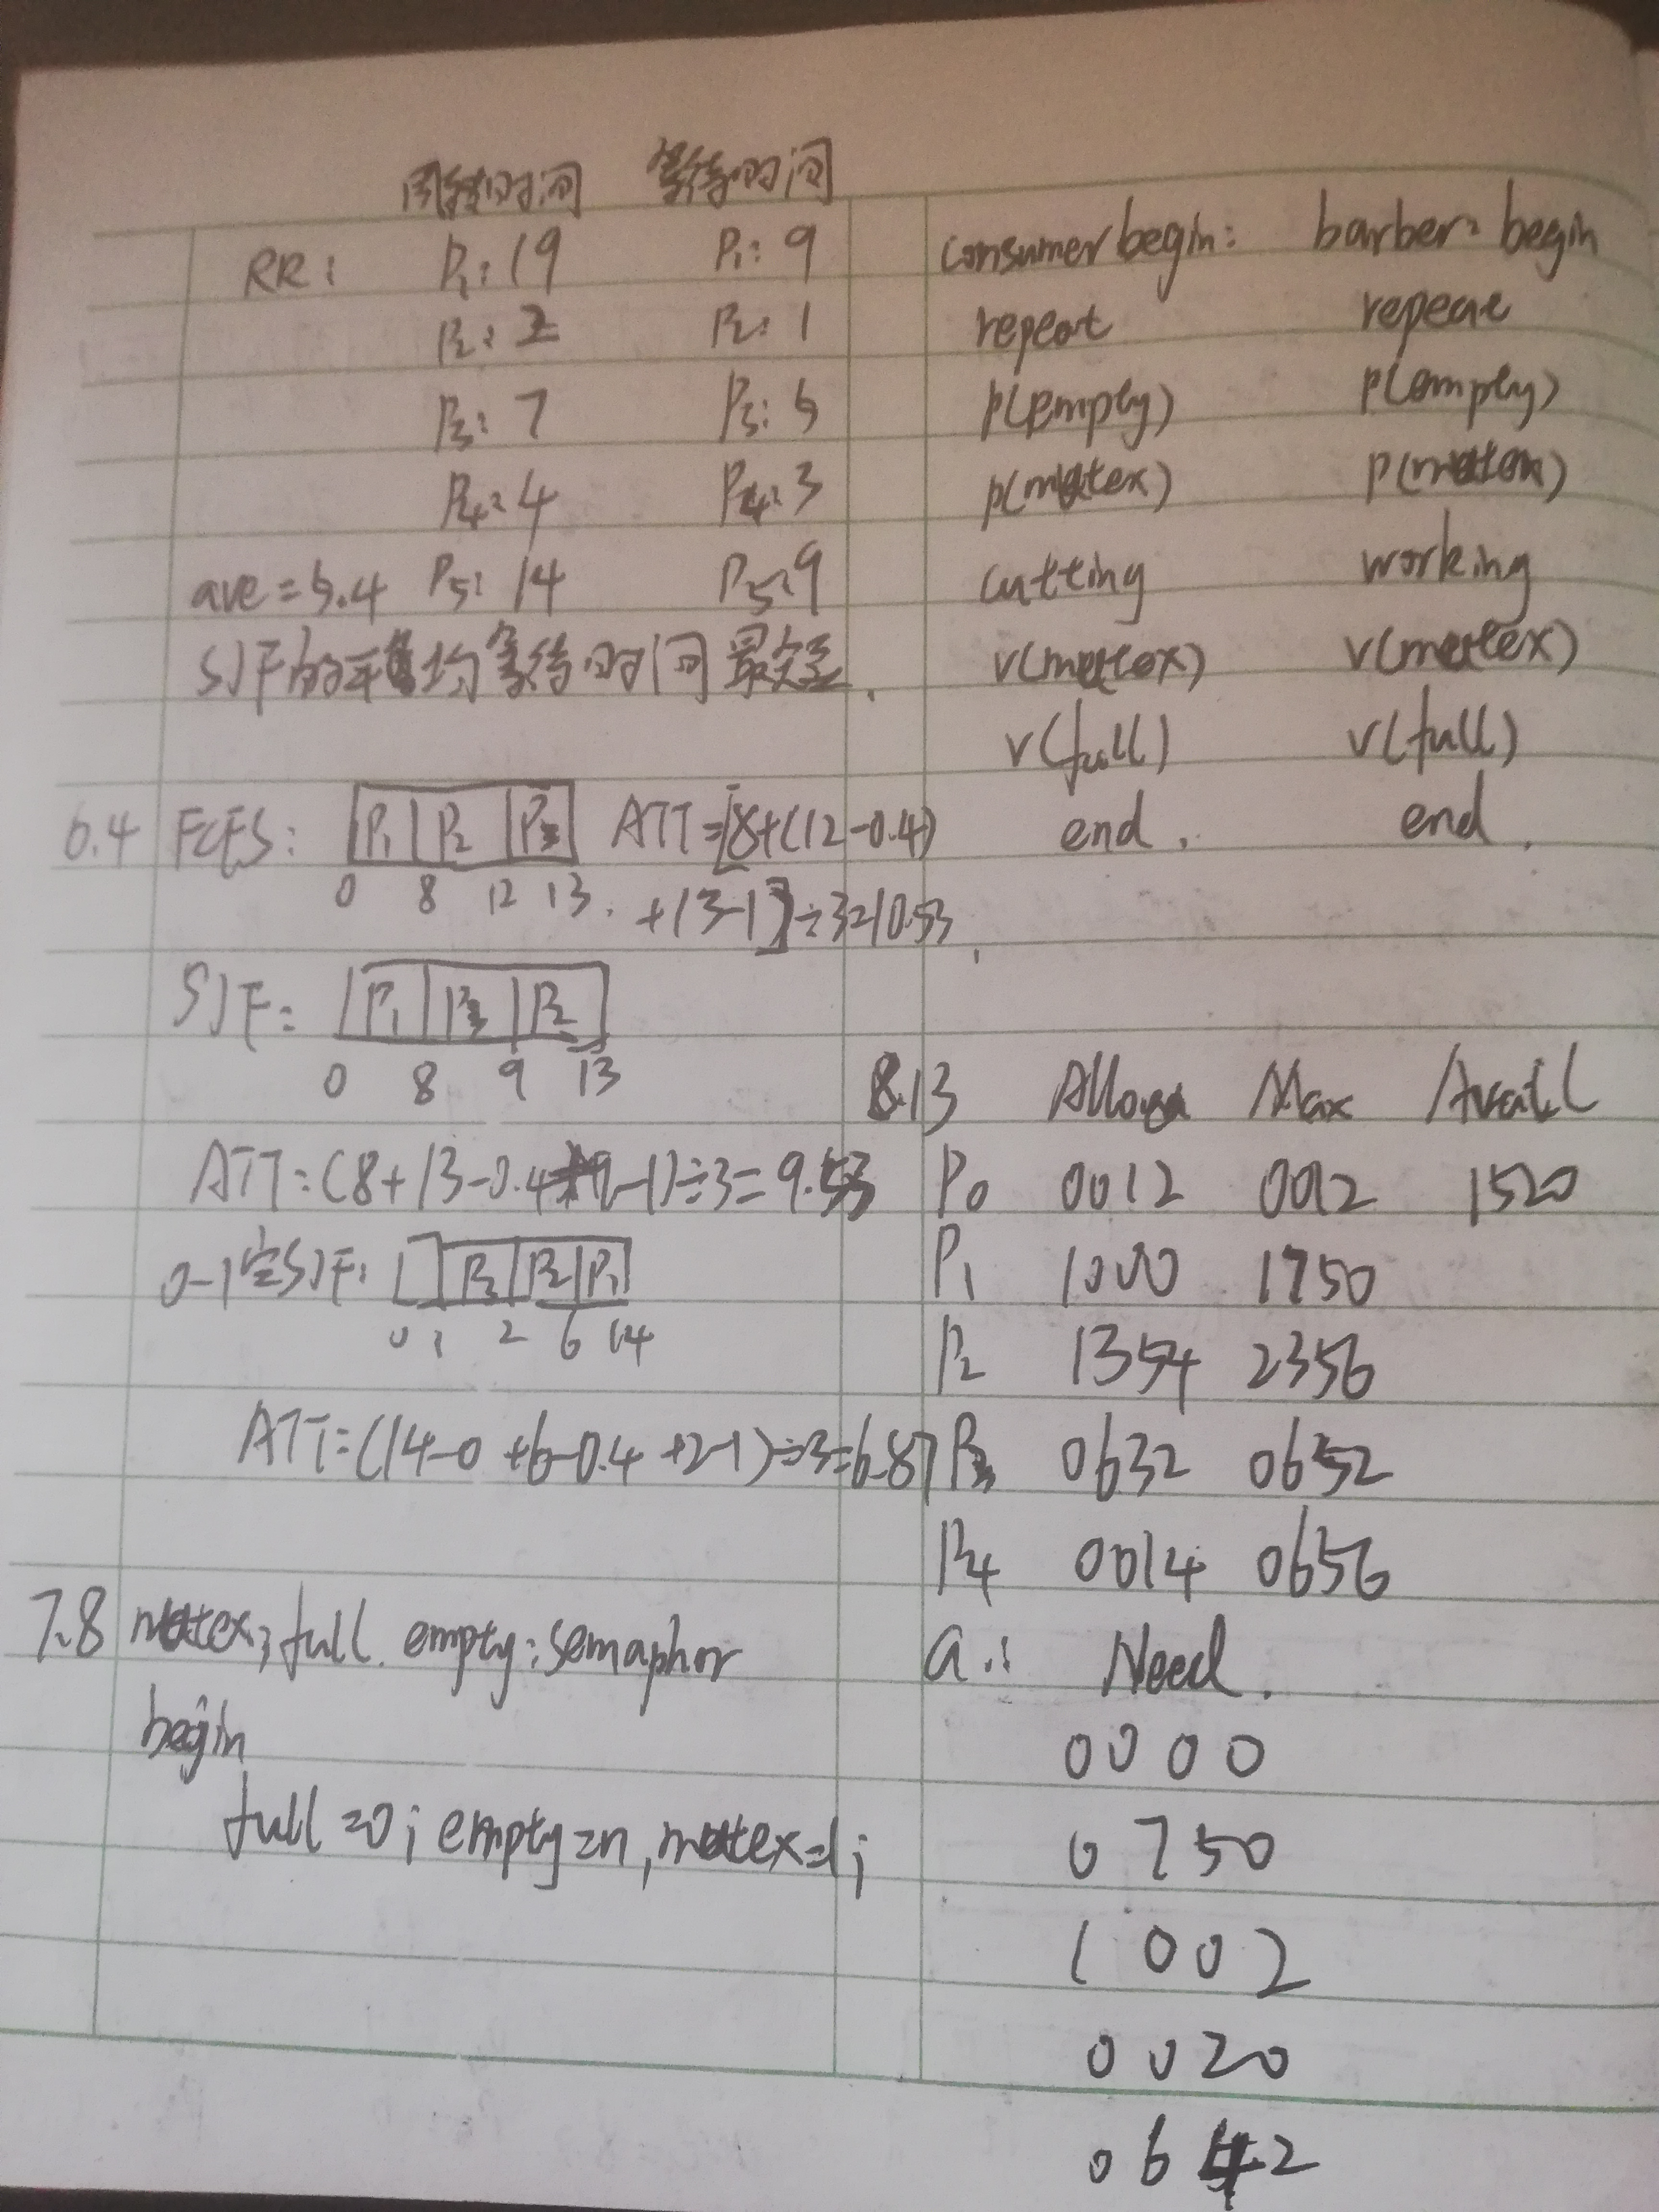 周转时间 等待时间
RR: P1: 19 P1: 9
P2: 2 P2: 1
P3: 7 P3: 5
P4: 4 P4: 3
ave = 5.4 P5: 14 P5: 9
SJF的平均等待时间最短.
6.4 FCFS: P1 P2 P3 ATT=[8+(12-0.4)
0 8 12 13. +13-1]÷3=10.53
SJF: P1 P3 P2
0 8 9 13
ATT=(8+13-0.4+9-1)÷3=9.53
0-1空SJF: P3 P2 P1
0 1 2 6 14
ATT=(14-0+6-0.4+2-1)÷3=6.87
7.8 mutex, full. empty: semaphor
begin
full=0; empty=n, mutex=1;
consumer begin: barber: begin
repeat repeat
p(empty) p(empty)
p(mutex) p(mutex)
cutting working
v(mutex) v(mutex)
v(full) v(full)
end. end.
8.13 Alloca Max Avail
P0 0012 0012 1520
P1 1000 1750
P2 1354 2356
P3 0632 0652
P4 0014 0656
a.: Need.
0 0 0 0
0 7 5 0
1 0 0 2
0 0 2 0
0 6 4 2